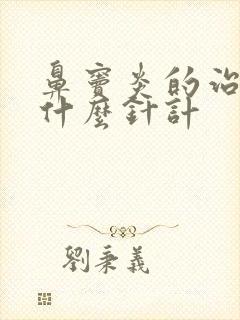 鼻竇炎的治
什麼針計
劉秉義